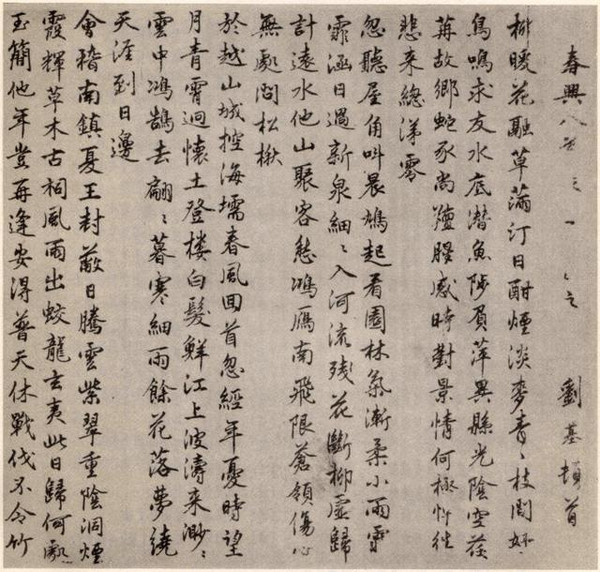 春興八首之一 劉基頓首
柳暖花融草滿汀日酣煙淡麥青〻枝間好
鳥鳴求友水底潛魚陟負萍異縣光陰空荏
苒故鄉蛇豕尚羶腥感時對景情何極忤往
悲来總涕零
忽聽屋角叫晨鳩起看園林氣漸柔小雨霏
霏涵日過新泉細〻入河流殘花斷柳虛歸
計遠水他山聚客愁鴻雁南飛限蒼嶺傷心
無處問松楸
於越山城控海壖春風回首忽經年憂時望
月青霄迥懷土登樓白髮鮮江上波濤来渺〻
雲中鴻鵠去翩〻暮寒細雨餘花落夢繞
天涯到日邊
會稽南鎮夏王封蔽日騰雲紫翠重陰洞煙
霞輝草木古祠風雨出蛟龍玄夷此日歸何處
玉簡他年豈再逢安得普天休戰伐不令竹